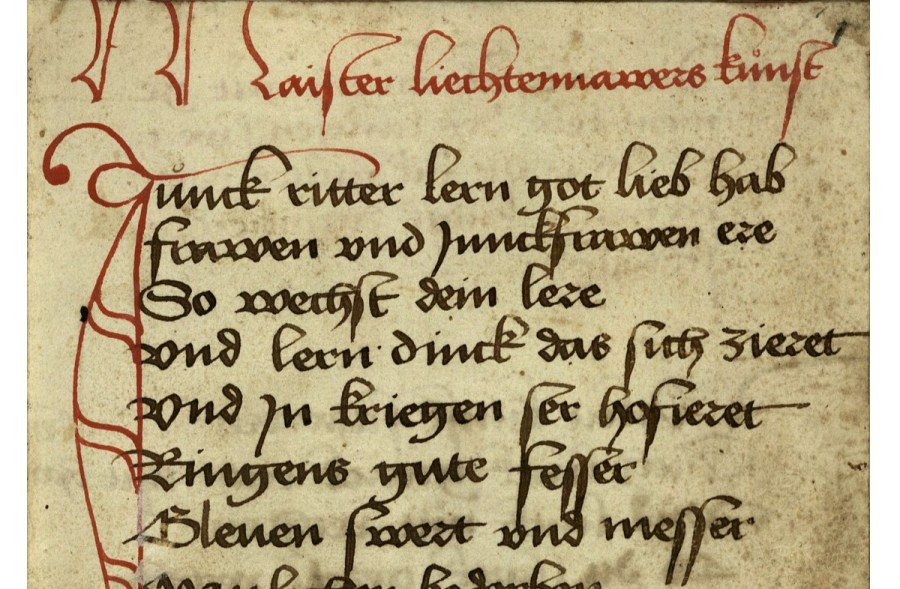 Maister liechtennawers kůnst
Jůnck ritter lern got lieb hab
frawen vnd Junckfrawen ere
So wechst dein lere
vnd lern dinck das sich zieret
Vnd In kriegen ser hofieret
Ringens gute fesser
Gleuen swert vnd messer